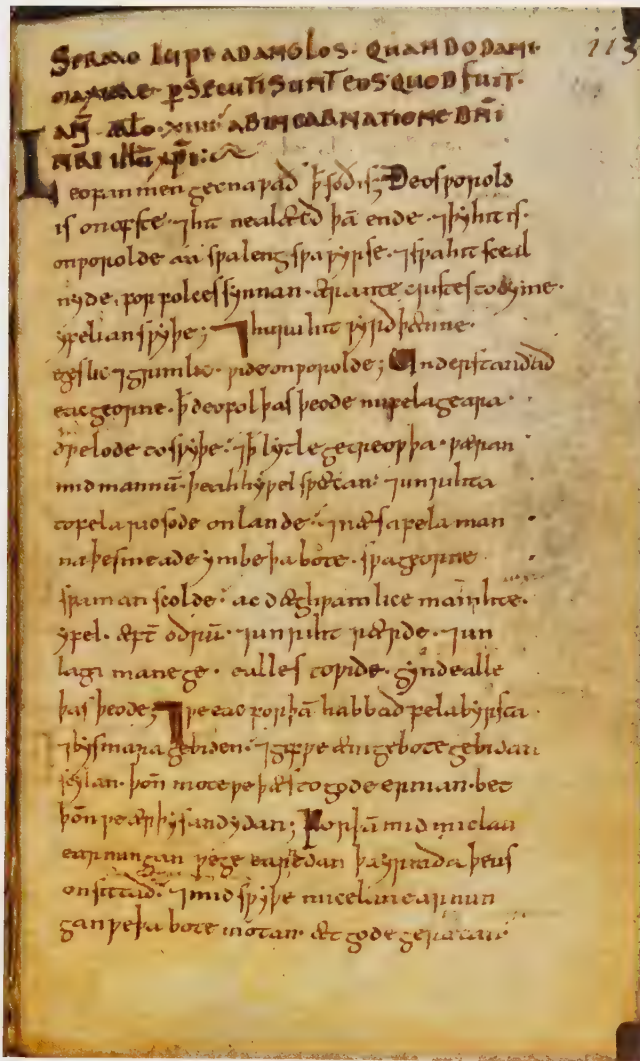 SERMO LUPI AD ANGLOS· QUANDO DANI
MAXIME PERSECUTI SUNT EOS QUOD FUIT·
AÑ· M̄LO·XIIII· AB INCARNATIONE DÑI
NRI IHU XPI;
Leofan men gecnaƿað ꝥ soð is; Ðeos ƿorold
is on ofste· ⁊ hit nealæcð þā ende· ⁊ þy hit is·
on ƿorolde aa sƿa leng sƿa ƿyrse· ⁊ sƿa hit sceal
nyde· for folces synnan· ær antecristes tocyme·
yfelian sƿyþe; ⁊ huru hit ƿyrð þænne·
egeslic ⁊ grimlic· ƿide on ƿorolde; Understandað
eac georne· ꝥ deofol þas þeode nu fela geara·
dƿelode to sƿyþe· ⁊ ꝥ lytle getreoƿþa· ƿæran·
mid mannū· þeah hy ƿel spæcan· ⁊ unrihta
to fela ricsode on lande· ⁊ næs a fela man
na þe smeade ymbe þa bote· sƿa georne·
sƿa man scolde· ac dæghƿamlice man ihte·
yfel· æft̄ oðrū· ⁊ unriht rærde· ⁊ un
laga manege· ealles to ƿide· gynd ealle
þas þeode; ⁊ ƿe eac forþā habbað fela byrsta·
⁊ bysmara gebiden· ⁊ gif ƿe ænige bote gebidan
scylan· þoñ mote ƿe þæs to gode ernian· bet
þoñ ƿe ær þysan dydan; Forþā mid miclan
earnungan ƿe geearnedan þa yrmða þe us
onsittað· ⁊ mid sƿyþe micelan earnun
gan ƿe þa bote motan· æt gode geræcan·